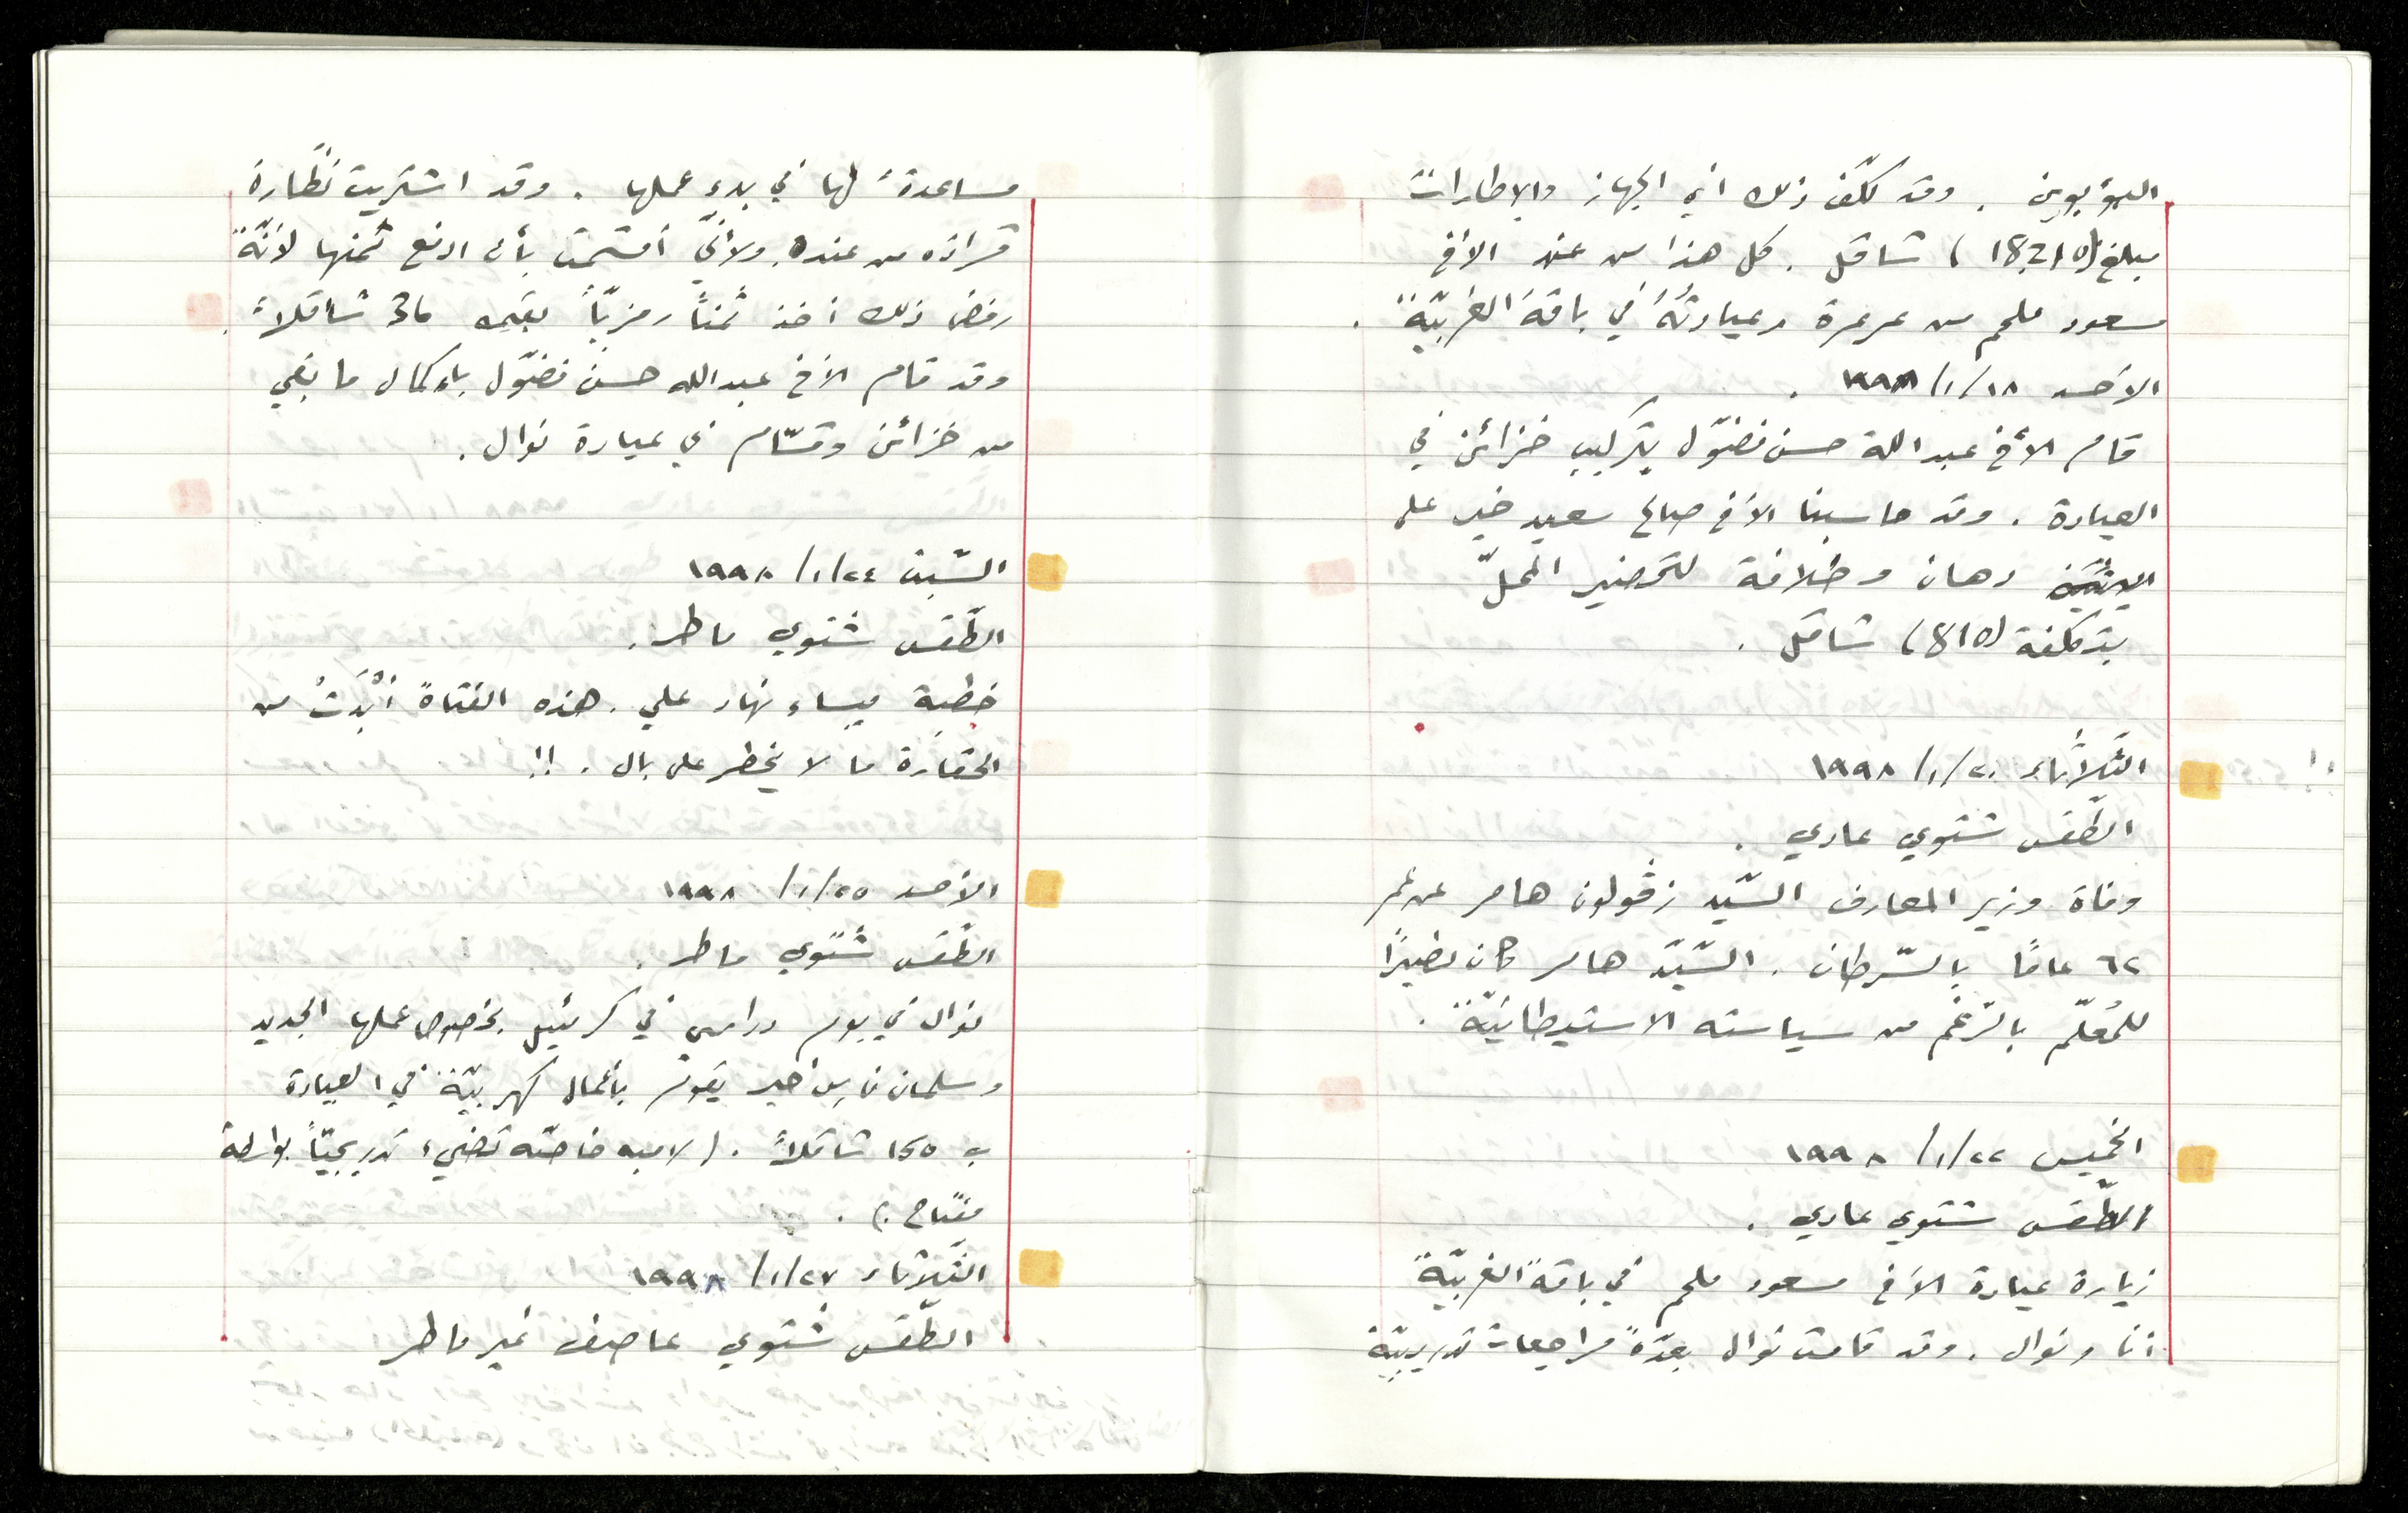 البؤبوين . وقد كلّف ذلك اي الجهاز والإطارات
مبلغ (18210) شاقل . كل هذا من عند الأخ
مسعود ملحم من عرعرة وعيادتُهُ في باقة الغربيّة .
الأحد ١٨/١/١٩٩٨ .
قام الأخ عبد الله حسن فضّول بتركيب خزائن في
العيادة . وقد حاسبنا الأخ صالح سعيد خير على
دهان وخلافة لتحضير المحلّ
بتكلفة (810) شاقل .
الثّلاثاء ٢٠/١/١٩٩٨
الطّقس شتوي عادي .
وفاة وزير المعارف السّيّد زڤولون هامر عن عمر
٦٢ عامًا بالسّرطان . السّيّد هامر كان نصيرًا
للمُعلّم بالرّغم من سياسته الاستيطانيّة .
الخميس ٢٢/١/١٩٩٨
الطّقس شتوي عادي .
زيارة عيادة الأخ مسعود ملحم في باقة الغربيّة
أنا ونوال . وقد قامت نوال بعدّة مراجعات تدريبيّة
مساعدةً لها في بدء عملها . وقد اشتريت نظّارة
قراءة من عنده. ولأنّي أقسمت بأن ادفع ثمنها لأنّهُ
رفض ذلك أخذ ثمنًا رمزيّاً بقيمة 36 شاقلاً .
وقد قام الأخ عبد الله حسن فضّول بإكمال ما بقي
من خزائن وقسّام في عيادة نوال .
السّبت ٢٤/١/١٩٩٨
الطّقس شتوي ماطر .
خطبة ميساء نهاد علي . هذه الفتاة أبْدَتْ من
الحقارة ما لا يخطر على بال . !!
الأحد ٢٥/١/١٩٩٨
الطّقس شتوي ماطر .
نوال في يوم دراسي في كرمئيل بخصوص عملها الجديد
وسلمان خير يقوم بأعمال كهربيّة في العيادة
ب 150 شاقلاً . (لامبه خاصّه تضيء تدريجيّاً بواسطة
مفتاح ) .
الثّلاثاء ٢٧/١/١٩٩٨
الطّقس شتوي عاصف غير ماطر